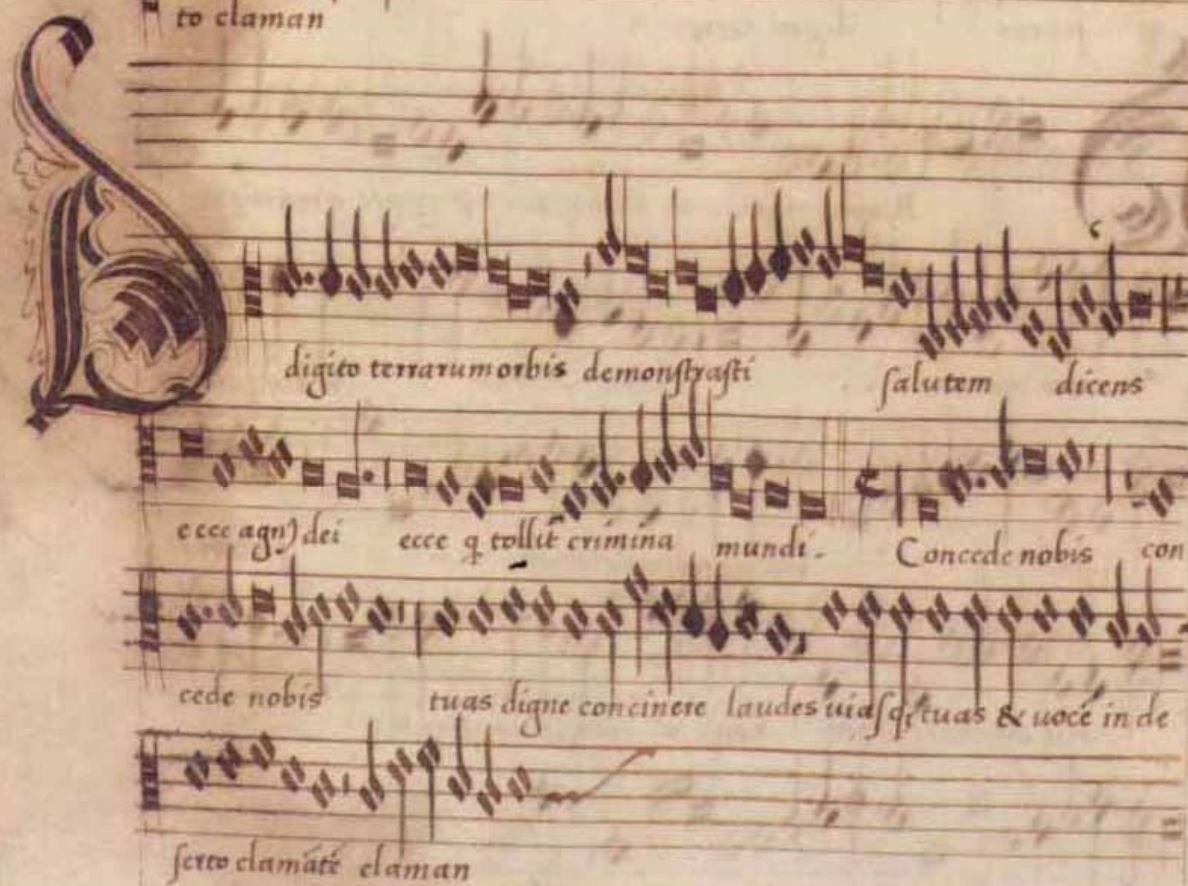 to claman
digito terrarum orbis demonstrasti salutem dicens
ecce agnꝰ dei ecce q tollit crimina mundi. Concede nobis con
cede nobis tuas digne concinere laudes uiasqꝫ tuas & uocē in de
serto clamātē claman